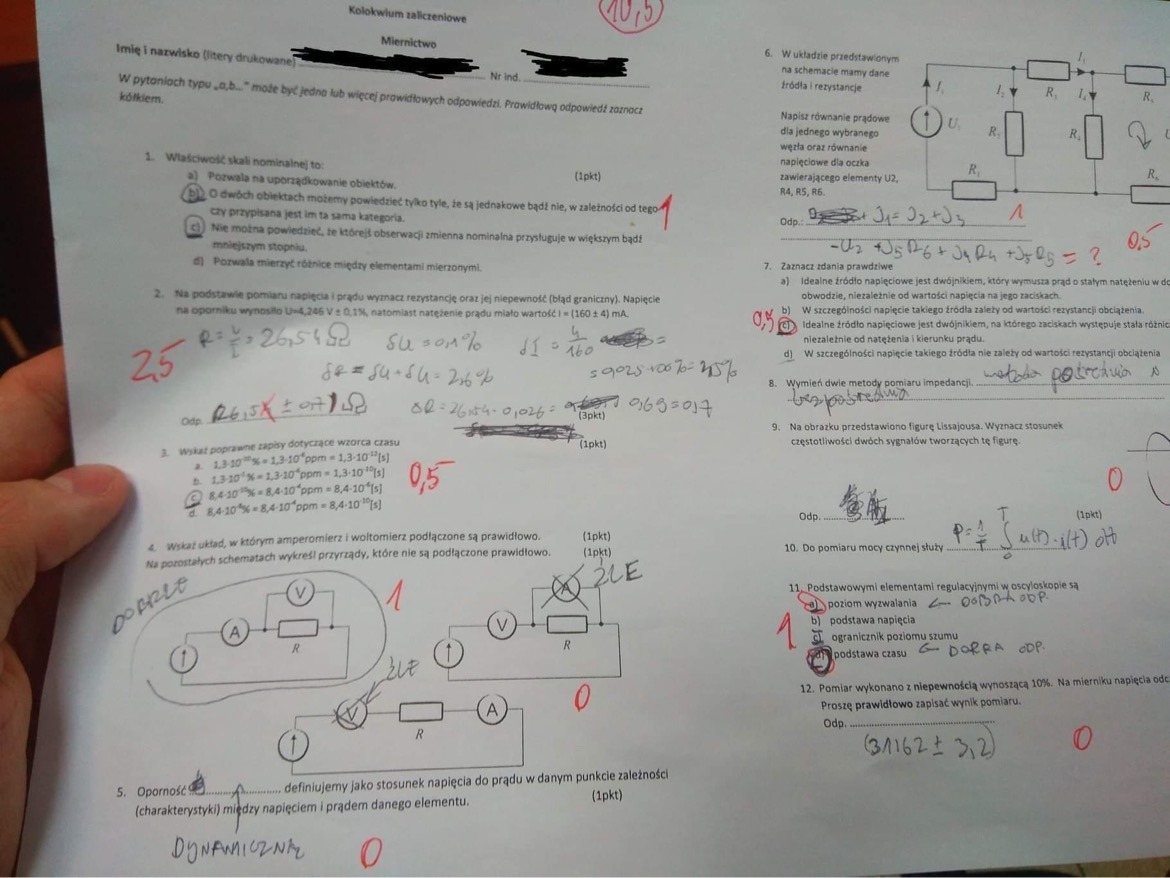 Kolokwium zaliczeniowe
10,5
Miernictwo
Imię i nazwisko (litery drukowane)
Nr ind.
W pytaniach typu „a,b...” może być jedna lub więcej prawidłowych odpowiedzi. Prawidłową odpowiedź zaznacz
kółkiem.
1. Właściwość skali nominalnej to:
(1pkt)
a) Pozwala na uporządkowanie obiektów.
b) O dwóch obiektach możemy powiedzieć tylko tyle, że są jednakowe bądź nie, w zależności od tego
czy przypisana jest im ta sama kategoria.
1
c) Nie można powiedzieć, że którejś obserwacji zmienna nominalna przysługuje w większym bądź
mniejszym stopniu.
d) Pozwala mierzyć różnice między elementami mierzonymi.
2. Na podstawie pomiaru napięcia i prądu wyznacz rezystancję oraz jej niepewność (błąd graniczny). Napięcie
na oporniku wynosiło U=4,246 V ± 0,1%, natomiast natężenie prądu miało wartość I = (160 ± 4) mA.
2,5
R = U/I = 26,54 Ω δU = 0,1% δI = 4/160 =
= 0,025 · 100% = 2,5%
δR = δU + δU = 2,6%
ΔR = 26,54 · 0,026 = 0,69 = 0,7
Odp. R 26,5 ± 0,7) Ω
(3pkt)
3. Wskaż poprawne zapisy dotyczące wzorca czasu
(1pkt)
0,5
4. Wskaż układ, w którym amperomierz i woltomierz podłączone są prawidłowo. (1pkt)
Na pozostałych schematach wykreśl przyrządy, które nie są podłączone prawidłowo. (1pkt)
DOBRZE
V
A
R
1
ŹLE
V
R
0
ŹLE
V
R
A
5. Oporność ............ definiujemy jako stosunek napięcia do prądu w danym punkcie zależności
(charakterystyki) między napięciem i prądem danego elementu. (1pkt)
DYNAMICZNĄ
0
6. W układzie przedstawionym
na schemacie mamy dane
źródła i rezystancje
Napisz równanie prądowe
dla jednego wybranego
węzła oraz równanie
napięciowe dla oczka
zawierającego elementy U2,
R4, R5, R6.
Odp.: + J1 = J2 + J3
1
-U2 + J5 R6 + J4 R4 + J5 R5 = ?
0,5
7. Zaznacz zdania prawdziwe
a) Idealne źródło napięciowe jest dwójnikiem, który wymusza prąd o stałym natężeniu w
obwodzie, niezależnie od wartości napięcia na jego zaciskach.
b) W szczególności napięcie takiego źródła zależy od wartości rezystancji obciążenia.
0,5
c) Idealne źródło napięciowe jest dwójnikiem, na którego zaciskach występuje stała
niezależnie od natężenia i kierunku prądu.
d) W szczególności napięcie takiego źródła nie zależy od wartości rezystancji obciążenia
8. Wymień dwie metody pomiaru impedancji. metoda pośrednia
bezpośrednia
9. Na obrazku przedstawiono figurę Lissajousa. Wyznacz stosunek
częstotliwości dwóch sygnałów tworzących tę figurę.
0
Odp.
(1pkt)
10. Do pomiaru mocy czynnej służy P = 1/T ∫ 0 T u(t) · i(t) dt
11. Podstawowymi elementami regulacyjnymi w oscyloskopie są
a) poziom wyzwalania ← DOBRA ODP.
b) podstawa napięcia
1
c) ogranicznik poziomu szumu
d) podstawa czasu ← DOBRA ODP.
12. Pomiar wykonano z niepewnością wynoszącą 10%. Na mierniku napięcia
Proszę prawidłowo zapisać wynik pomiaru.
Odp.
(31,62 ± 3,2)
0